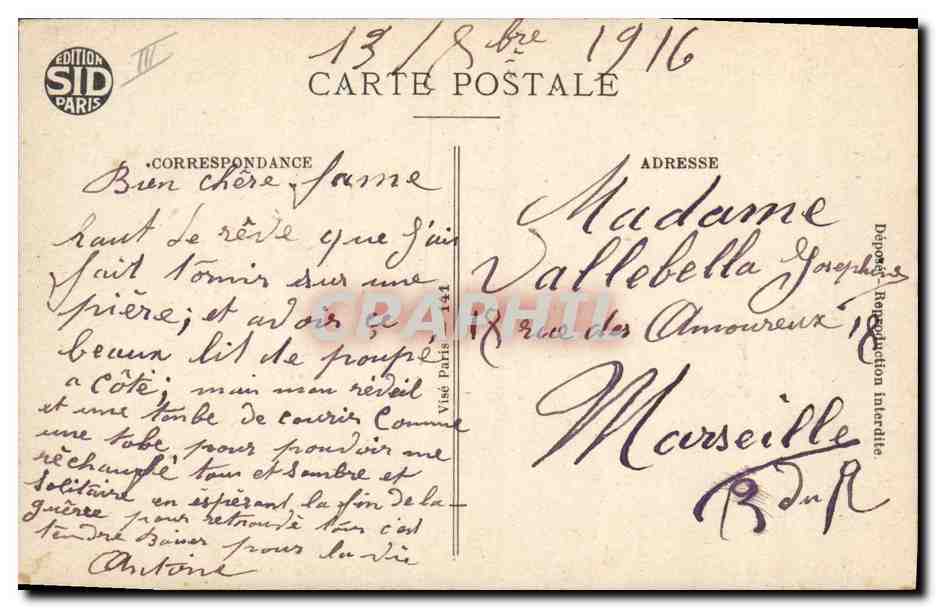 EDITION
SID
PARIS
III
13 / 8bre 1916
CARTE POSTALE
CORRESPONDANCE
Bien chère fame
haut de rêve que j'ais
fait tōmir sur une
pière; et avoir çe
beaux lit de poupé
a côté; mais mon réveil
et une tombe de couris comme
une tobe, pour pouvoir me
rêchaufé tous et sombre et
solitaire en espèrant la fin de la
guêree pour retroudé tous c'est
tendre Baser pour la vie
Antoine
Visé Paris 141
ADRESSE
Madame
Vallebella Josephine
18 rue des Amoureux 18
Marseille
B du R
Déposée - Reproduction interdite.
CPAPHIL